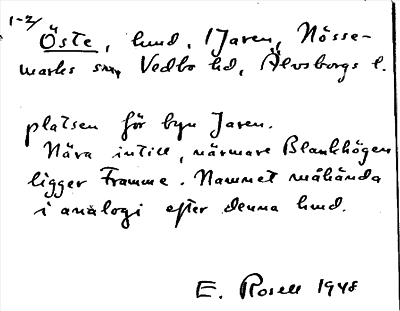 1-2/
Öste, hmd, i Jaren, Nösse-
marks sn, Vedbo hd, Älvsborgs l.
platsen för byn Jaren.
Nära intill, närmare Blankhögen
ligger Framme. Namnet måhända
i analogi efter denna hmd.
E. Rosell 1948